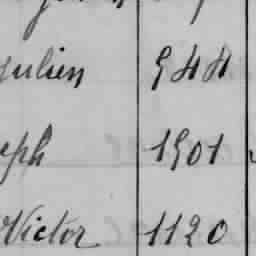 Julien 944
eph 1901
Victor 1120